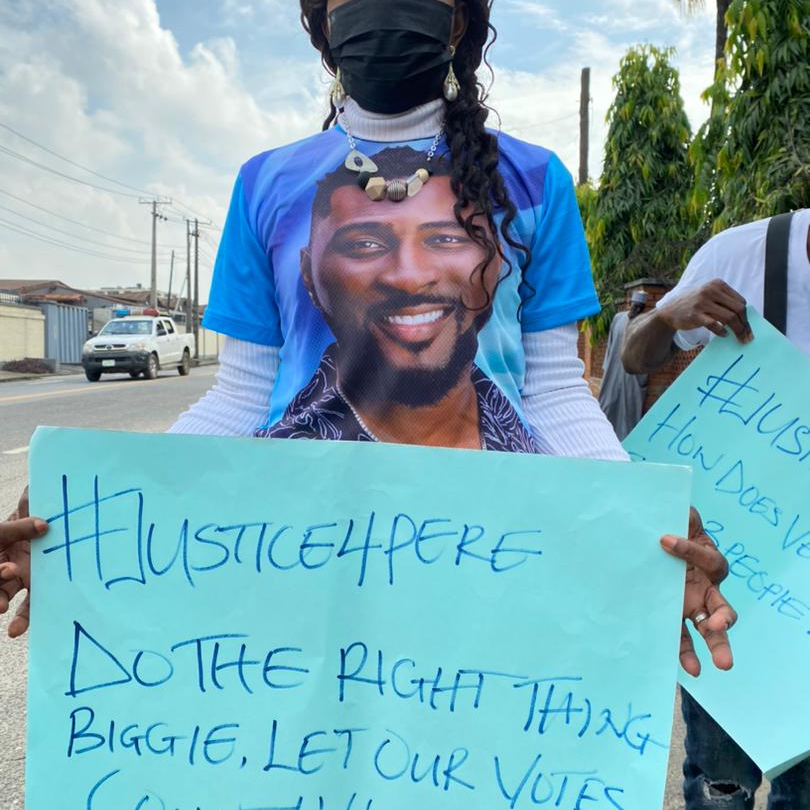 #JUSTICE4PERE
DO THE RIGHT THING
BIGGIE, LET OUR VOTES
#JUSTI
HOW DOES VE
3 PEOPLE